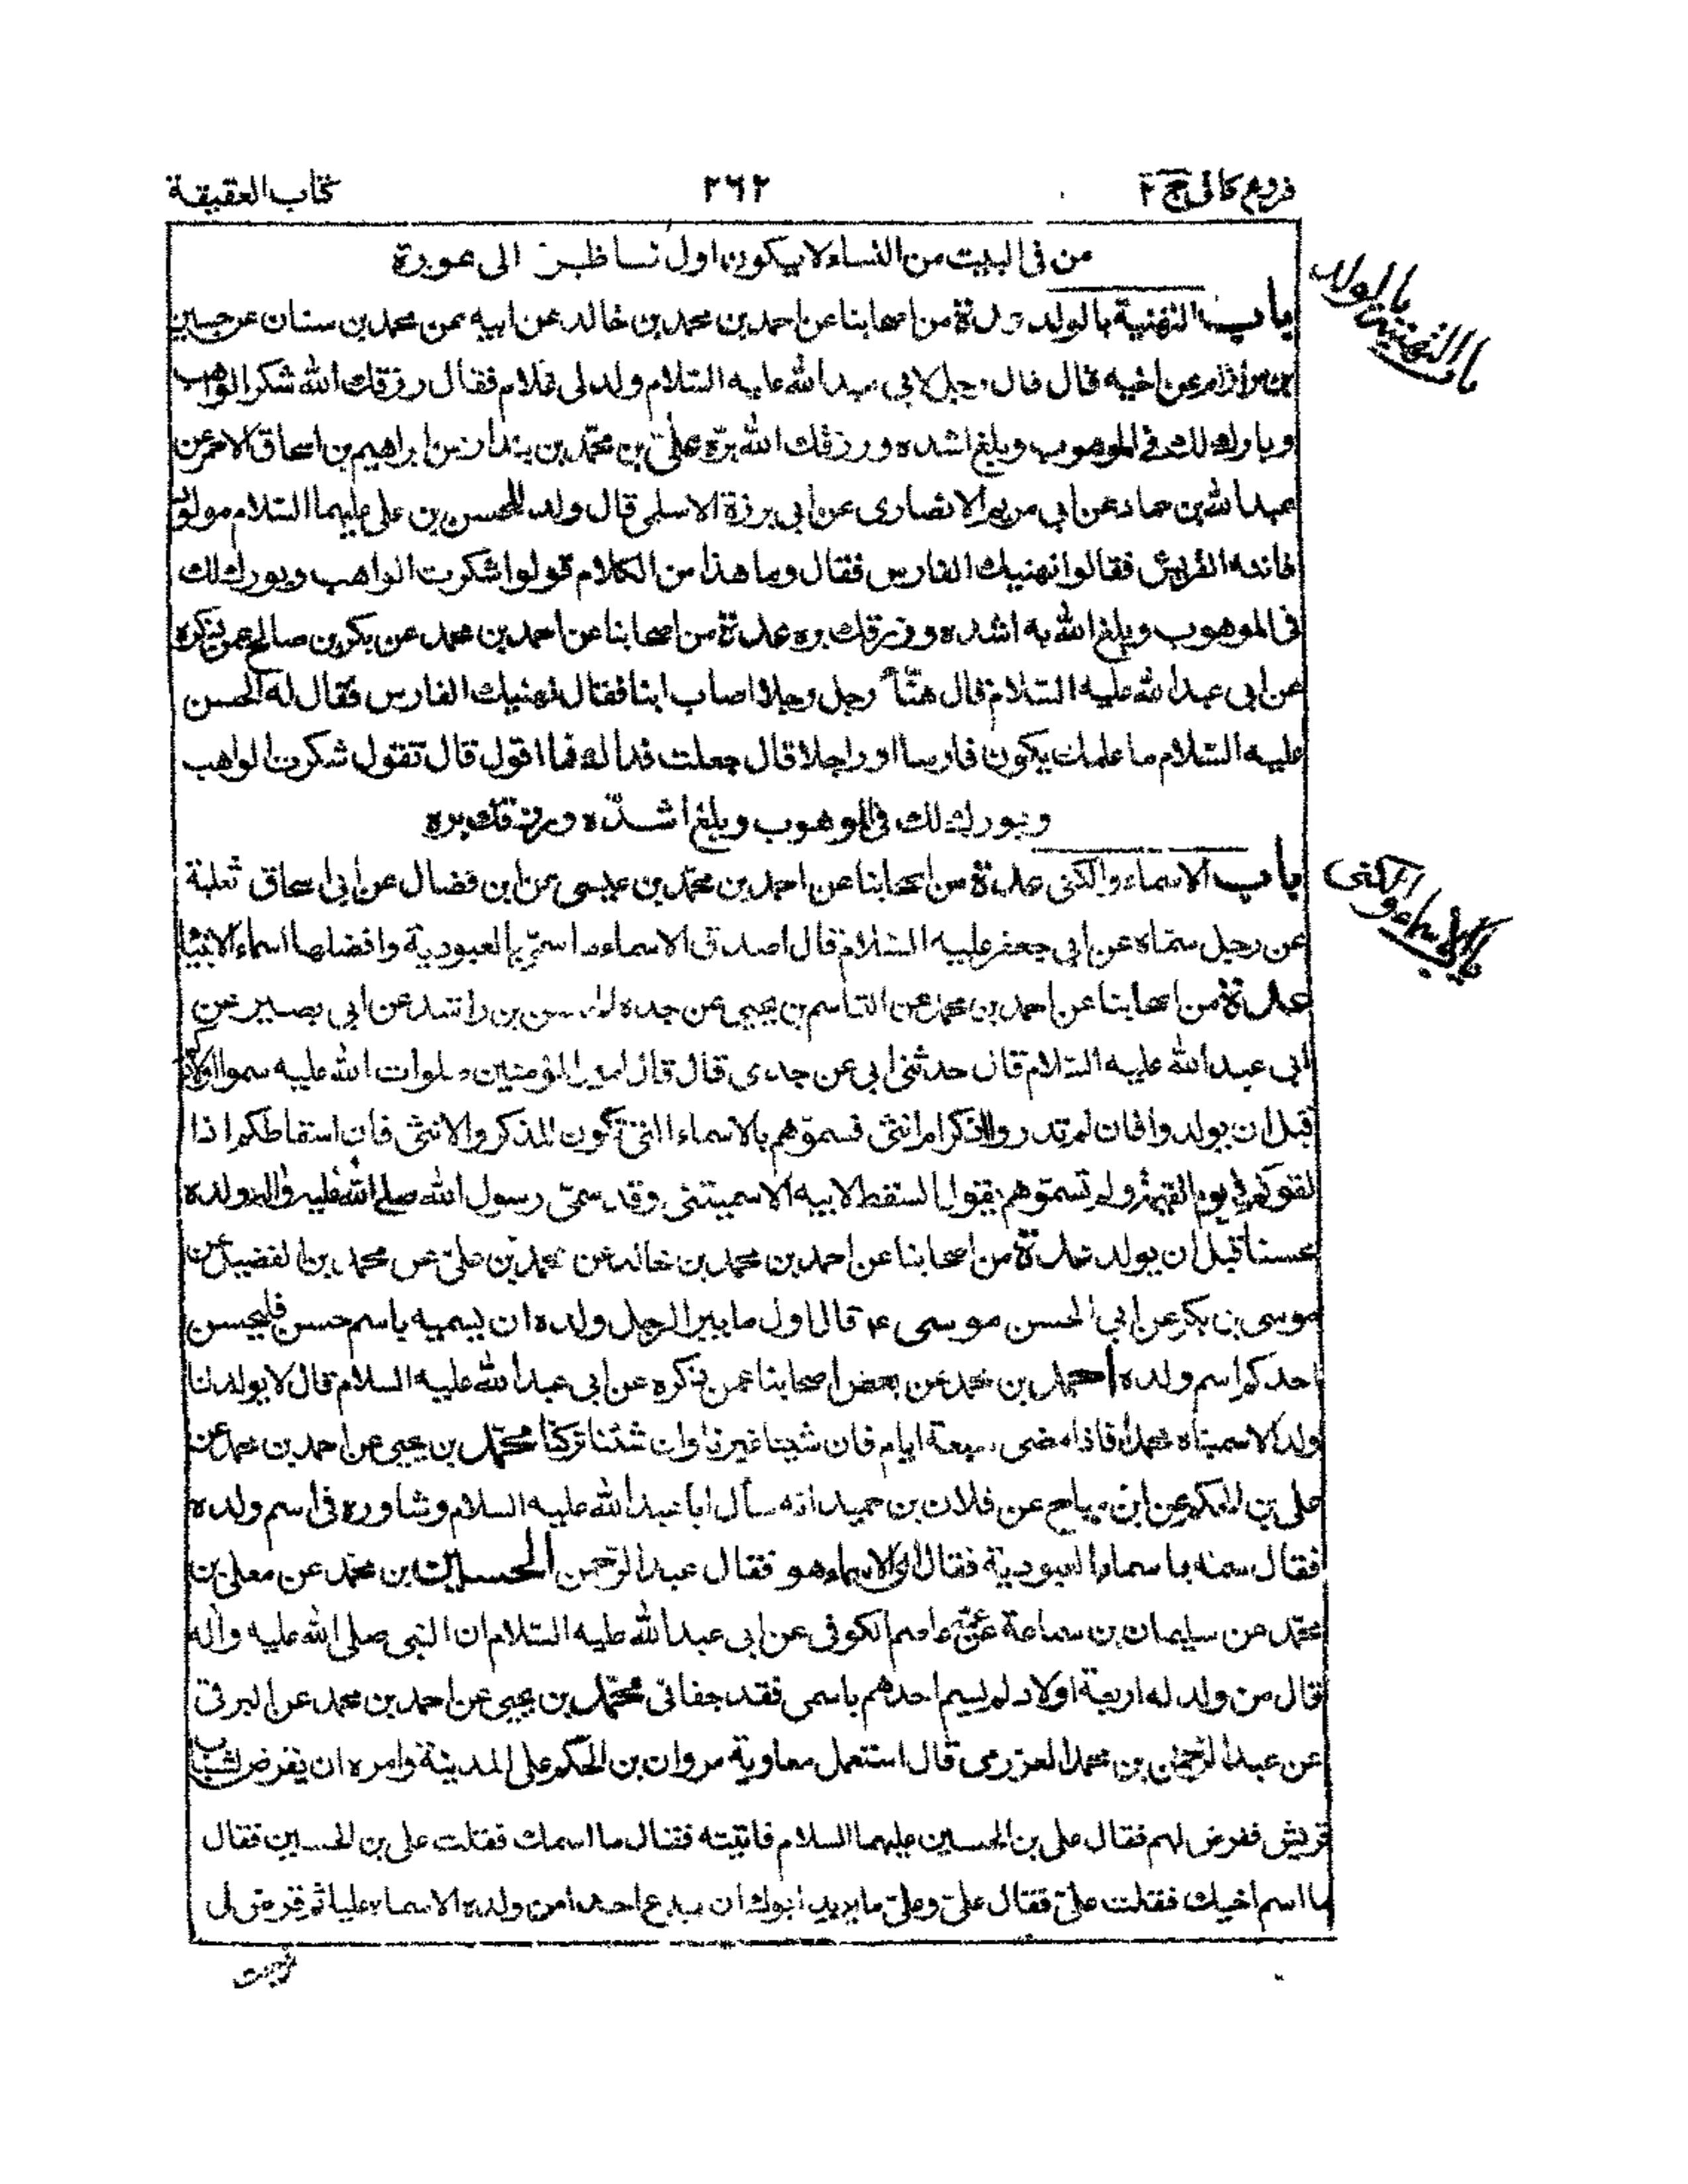 فروع كافى ج ٢
٢٦٢
كتاب العقيقة
من فى البيت من النساء لا يكون اول ناظر الى عورة
باب التهنية بالولد عدة من اصحابنا عن احمد بن محمد بن خالد عن ابيه عمن محمد بن سنان عن حسين
بالتهنية بالولد
باب
عن اخيه قال قال رجل لابى عبد الله عليه السلام ولد لى غلام فقال رزقك الله شكر الواهب
وبارك لك فى الموهوب وبلغ اشده ورزقك الله بره على بن محمد بن بندار عن ابراهيم بن اسحاق الاحمر عن
عبد الله بن حماد عن ابى مريم الانصارى عن ابى برزة الاسلمى قال ولد للحسن بن على عليهما السلام مولود
فاتته القريش فقالوا نهنيك الفارس فقال وما هذا من الكلام قولوا شكرت الواهب وبورك لك
فى الموهوب وبلغ الله به اشده ورزقك بره عدة من اصحابنا عن احمد بن محمد عن بكر بن صالح عمن ذكره
عن ابى عبد الله عليه السلام قال هنّأ رجل رجلا اصاب ابنا فقال نهنيك الفارس فقال له الحسن
عليه السلام ما علمك يكون فارسا او راجلا قال جعلت فداك فما اقول قال تقول شكرت الواهب
وبورك لك فى الموهوب وبلغ اشدّه ورزقك بره
باب الاسماء والكنى عدة من اصحابنا عن احمد بن محمد بن عيسى عن ابن فضال عن ابى اسحاق ثعلبة
باب الاسماء والكنى
عن رجل سمّاه عن ابى جعفر عليه السلام قال اصدق الاسماء ما سمّى بالعبودية وافضلها اسماء الانبيا
عدة من اصحابنا عن احمد بن محمد عن القاسم بن يحيى عن جده الحسن بن راشد عن ابى بصير عن
ابى عبد الله عليه السلام قال حدثنى ابى عن جدى قال قال امير المؤمنين صلوات الله عليه سموا اولادكم
قبل ان يولدوا فان لم تدروا اذكر ام انثى فسمّوهم بالاسماء التى تكون للذكر والانثى فان اسقاطكم اذا
لقوكم فى يوم القيمة ولم تسمّوهم يقول السقط لابيه الا سميتنى وقد سمّى رسول الله صلى الله عليه واله ولده
محسنا قبل ان يولد عدة من اصحابنا عن احمد بن محمد بن خالد عن محمد بن على عن محمد بن الفضيل عن
موسى بن بكر عن ابى الحسن موسى ع قال اول ما يبر الرجل ولده ان يسميه باسم حسن فليحسن
احدكم اسم ولده احمد بن محمد عن بعض اصحابنا عمن ذكره عن ابى عبد الله عليه السلام قال لا يولد لنا
ولد الا سميناه محمدا فاذا مضى سبعة ايام فان شينا غيرنا وان شئنا تركنا محمد بن يحيى عن احمد بن محمد عن
على بن الحكم عن ابن مياح عن فلان بن حميد انه سأل ابا عبد الله عليه السلام وشاوره فى اسم ولده
فقال سمه باسماء العبودية فقال اى الاسماء هو فقال عبد الرحمن الحسين بن محمد عن معلى بن
محمد عن سليمان بن سماعة عن عمّه عاصم الكوفى عن ابى عبد الله عليه السلام ان النبى صلى الله عليه وآله
قال من ولد له اربعة اولاد لم يسم احدهم باسمى فقد جفانى محمد بن يحيى عن احمد بن محمد عن البرقى
عن عبد الرحمن بن محمد العزرمى قال استعمل معاوية مروان بن الحكم على المدينة وامره ان يفرض لشباب
قريش ففرض لهم فقال على بن الحسين عليهما السلام فاتيته فقال ما اسمك فقلت على بن الحسين فقال
ما اسم اخيك فقلت علىّ فقال علىّ وعلىّ ما يريد ابوك ان يدع احدا من ولده الا سماه عليا ثم فرض لى
فرجعت